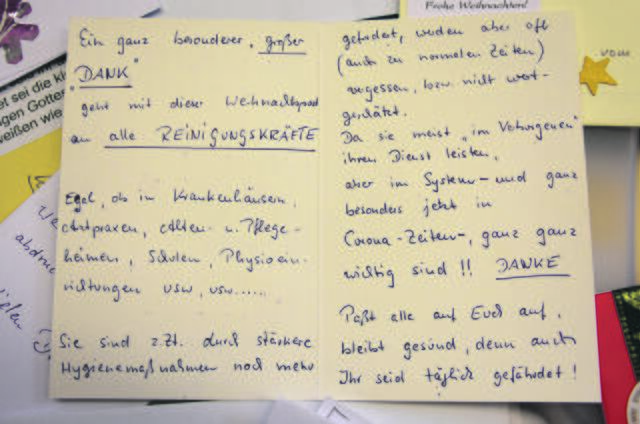 Ein ganz besonderer, großer
"DANK"
geht mit dieser Weihnachtspost
an alle REINIGUNGSKRÄFTE
Egal, ob in Krankenhäusern,
Arztpraxen, Alten- u. Pflege-
heimen, Schulen, Physioein-
richtungen usw, usw......
Sie sind z.Zt. durch stärkere
Hygienemaßnahmen noch mehr
gefordert, werden aber oft
(auch zu normalen Zeiten)
vergessen, bzw. nicht wert-
geschätzt.
Da sie meist "im Verborgenen"
ihren Dienst leisten,
aber im System - und ganz
besonders jetzt in
Corona-Zeiten-, ganz ganz
wichtig sind!! DANKE
Paßt alle auf Euch auf,
bleibt gesund, denn auch
Ihr seid täglich gefährdet!
Frohe Weihnachten!
vom
et sei die
igen Gottes
weißen wie